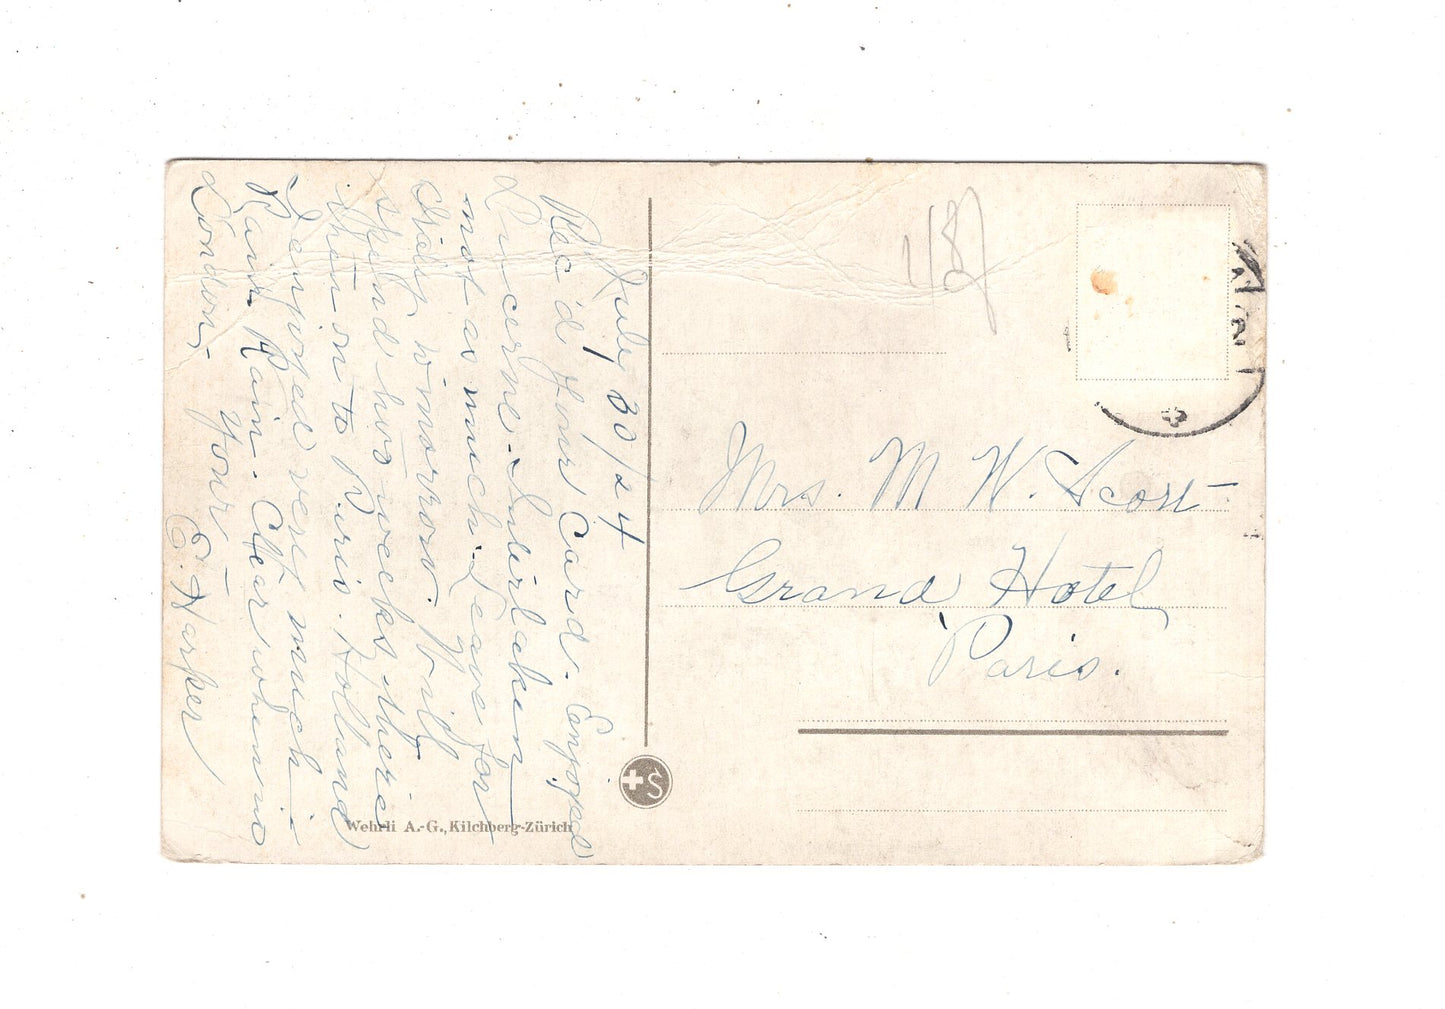 July 30/24
Rec'd your Card. Enjoyed
Lucerne - Interlaken
not as much. Leave for
Italy to-morrow. Will
spend two weeks there
then on to Paris. Holland
I enjoyed very much -
Rain, Rain. Clear when in
London - Your
E. Harper
Wehrli A.-G., Kilchberg-Zürich
+S
Mrs. M W. Scott
Grand Hotel,
Paris.